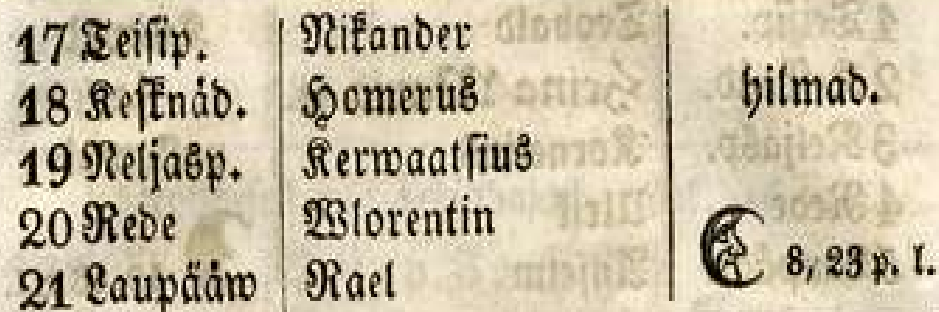 17 Teisip. Nikander
18 Kesknäd. Homerus hilmad.
19 Neljasp. Kerwaatsius
20 Rede Wlorentin
21 Laupääw Rael 8, 23 p. l.